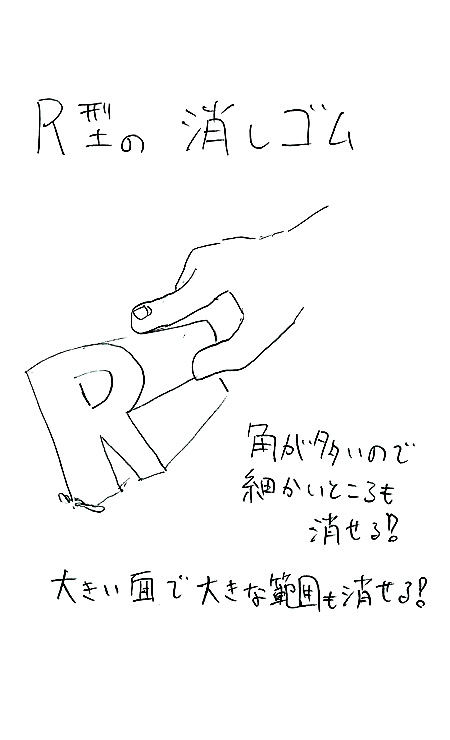 R型の 消しゴム
R
角が多いので
細かいところも
消せる!?
大きい面で大きな範囲も消せる!?